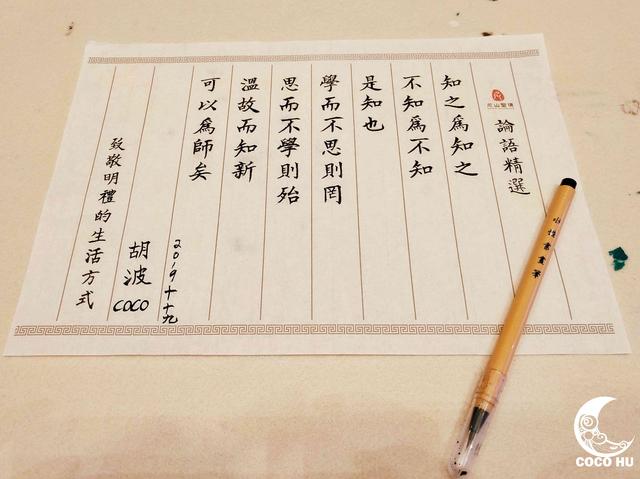 論語精選
知之為知之
不知為不知
是知也
學而不思則罔
思而不學則殆
溫故而知新
可以為師矣
2019十十九
胡波
COCO
致敬明禮的生活方式
水性書畫筆
COCO HU